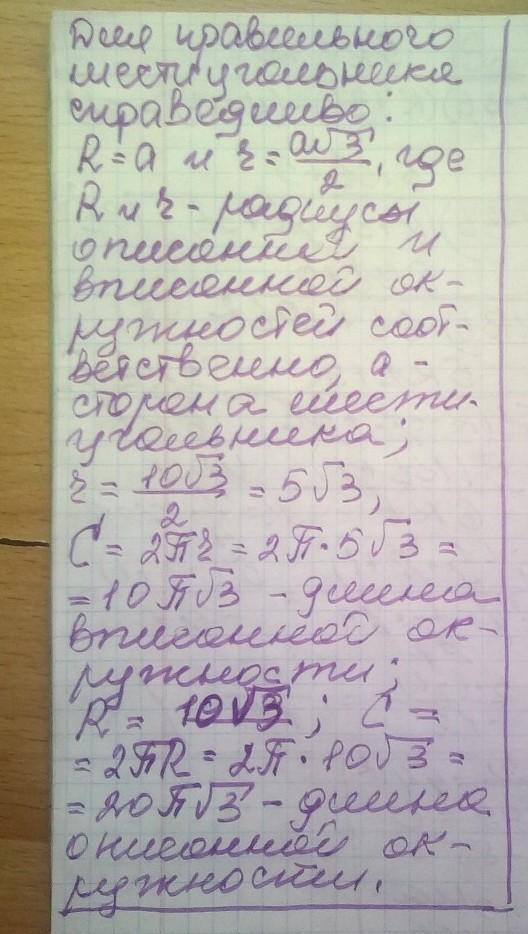 Для правильного
шестиугольника
справедливо:
R = a и r = a√3/2, где
R и r - радиусы
описанной и
вписанной ок-
ружностей соот-
ветственно, a -
сторона шести-
угольника;
r = 10√3/2 = 5√3,
C = 2πr = 2π·5√3 =
= 10π√3 - длина
вписанной ок-
ружности;
R = 10√3; C =
= 2πR = 2π·10√3 =
= 20π√3 - длина
описанной ок-
ружности.